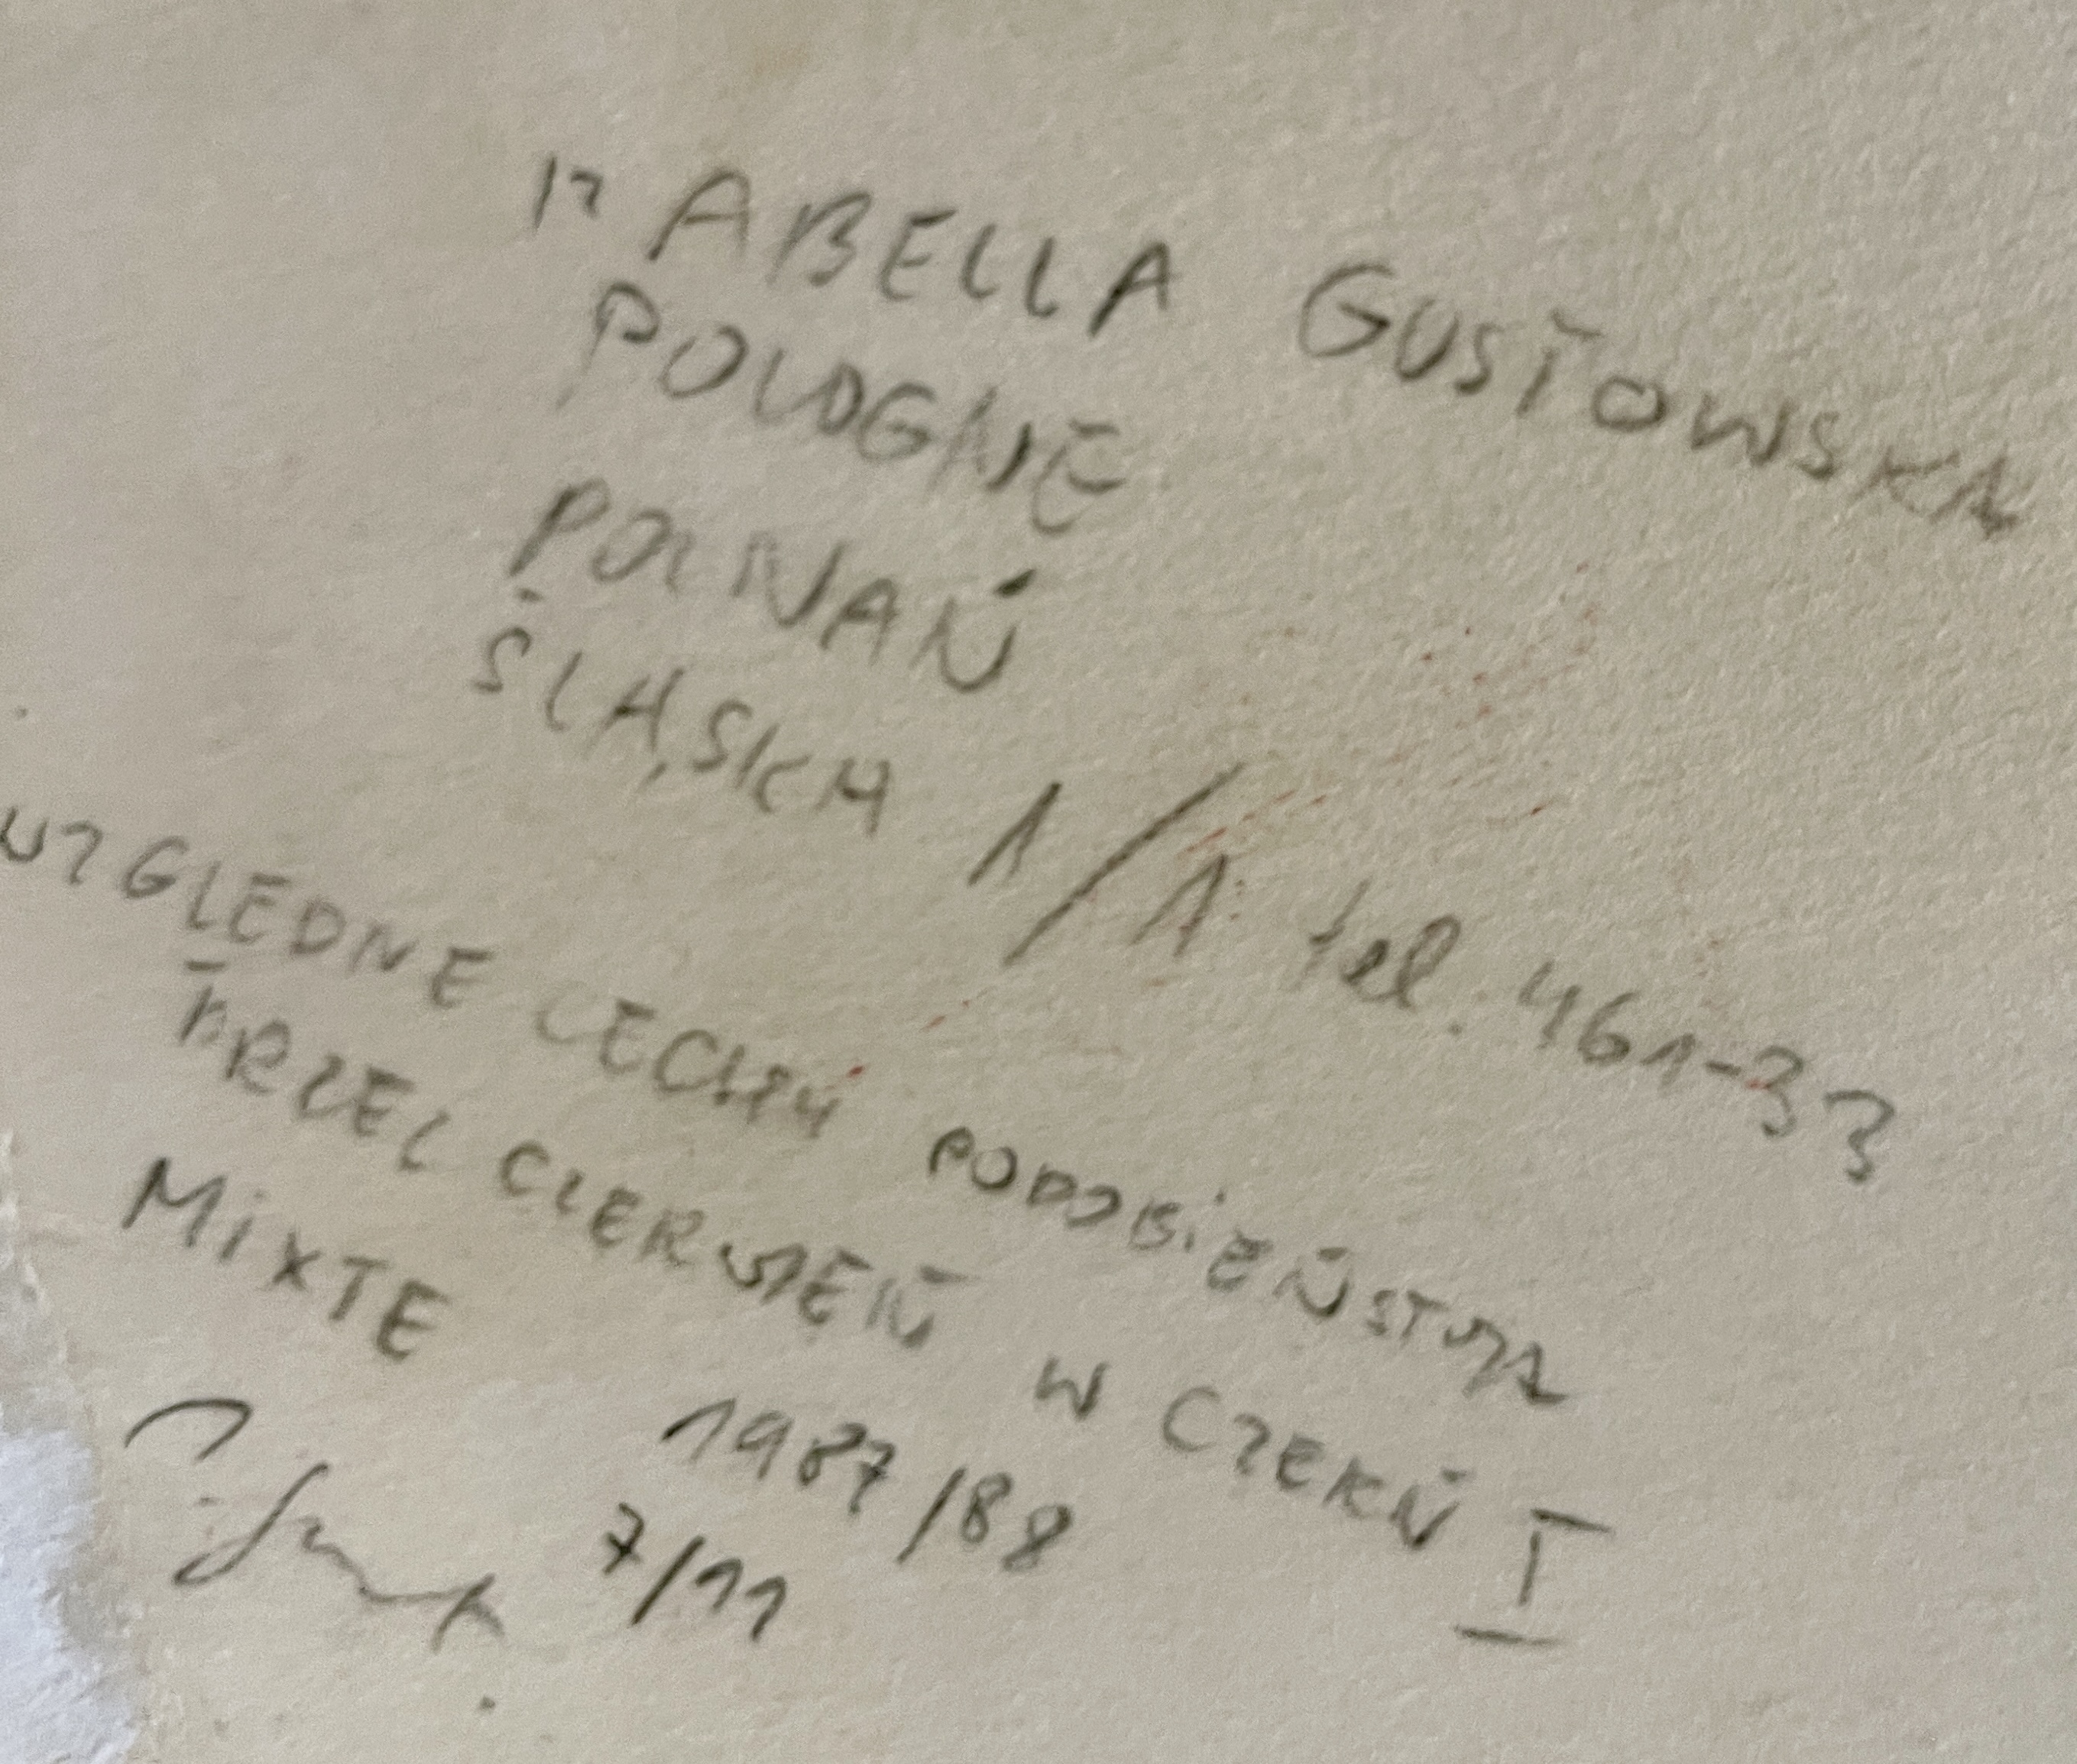 IZABELLA GUSTOWSKA
POLOGNE
POZNAŃ
ŚLĄSKA 1/1 tel. 461-33
WZGLĘDNE CECHY PODOBIEŃSTWA
PRZEZ CZERWIEŃ W CZERŃ I
MIXTE
1987/88
7/11